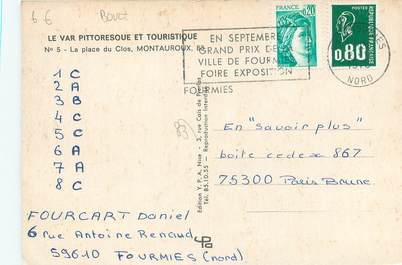 66
Bouct
LE VAR PITTORESQUE ET TOURISTIQUE
N° 5 - La place du Clos, MONTAUROUX, 83
EN SEPTEMBRE
GRAND PRIX DE
VILLE DE FOURMIES
FOIRE EXPOSITION
FOURMIES
FRANCE
0,20
POSTES
0,80
REPUBLIQUE FRANÇAISE
NORD
1 C
2 A
3 B
4 C
5 C
6 A
7 A
8 C
83
Edition Y. P. A. Nice - 3, rue
Tél. 85.10.55 - Reproduction Interdite
En "savoir plus"
boite cedex 867
75300 Paris Brune
FOURCART Daniel
6 rue Antoine Renaud
59610 FOURMIES (nord)